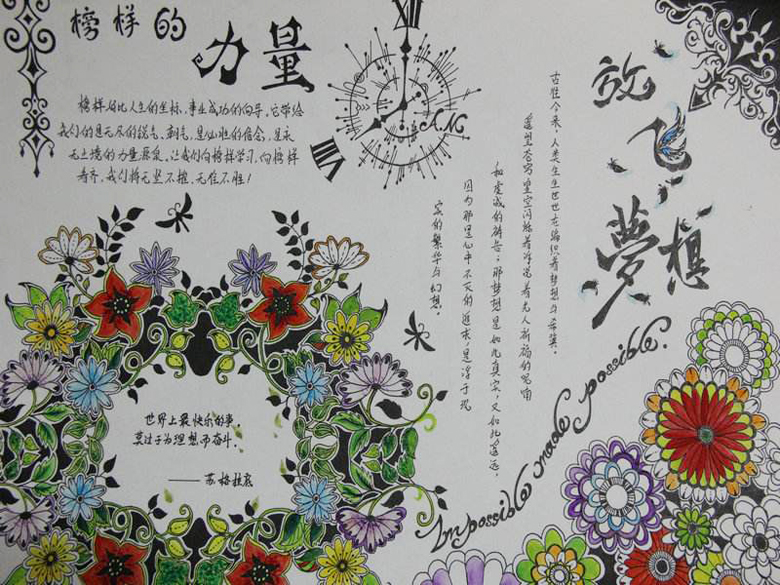 榜样的
力量
榜样好比人生的坐标,事业成功的向导,它带给
我们的是无尽的锐气、朝气,是必胜的信念,是永
无止境的力量源泉。让我们向榜样学习,向榜样
看齐,我们将无坚不摧、无往不胜!
XII
VIII
放飞
夢想
古往今来,人类生生世世在编织着梦想与希冀,
遥望苍穹星空闪烁着
和虔诚的祷告;那梦想是如此真实,又如此遥远,
因为那是心中不灭的追求,是浮于现
实的繁华与幻想。
世界上最快乐的事,
莫过于为理想而奋斗。
——苏格拉底
Impossible made possible.